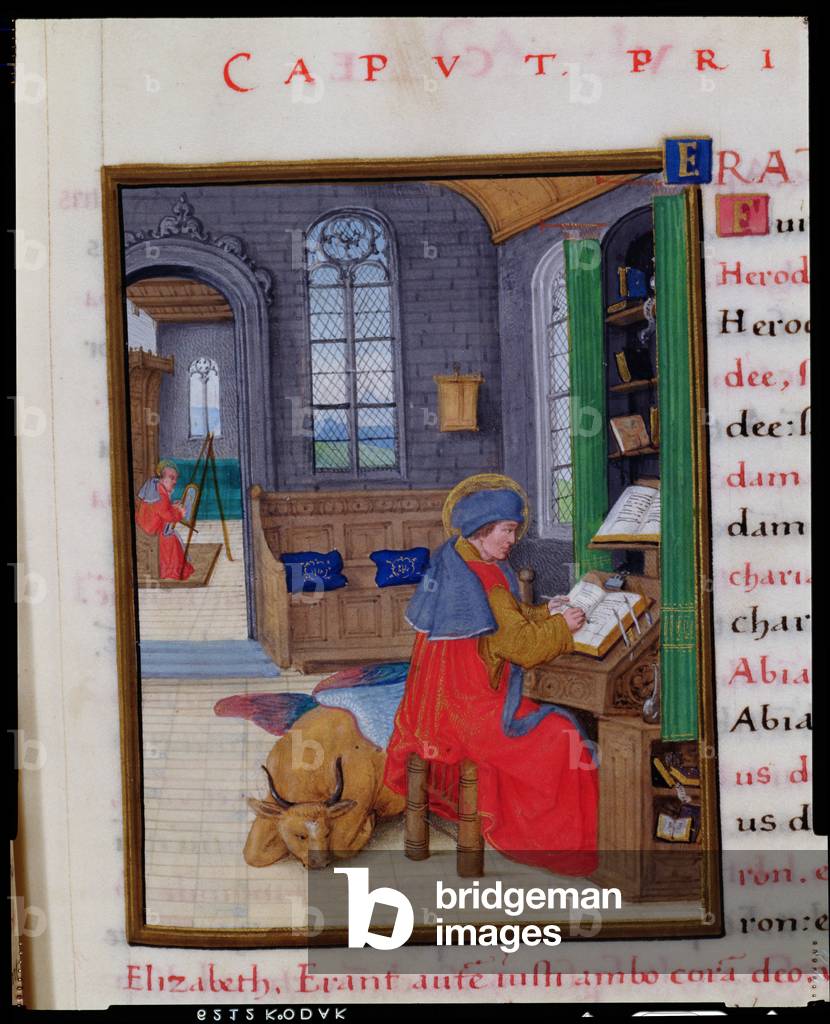 CAPVT. PRI
ERAT
Fui
Herod
Herod
dee, ſ
dee: ſ
dam
dam
charia
char
Abia
Abia
us d
us d
iron. e
ron: e
Elizabeth. Erant autē iusti ambo corā deo
b bridgeman images
6212 KODAK